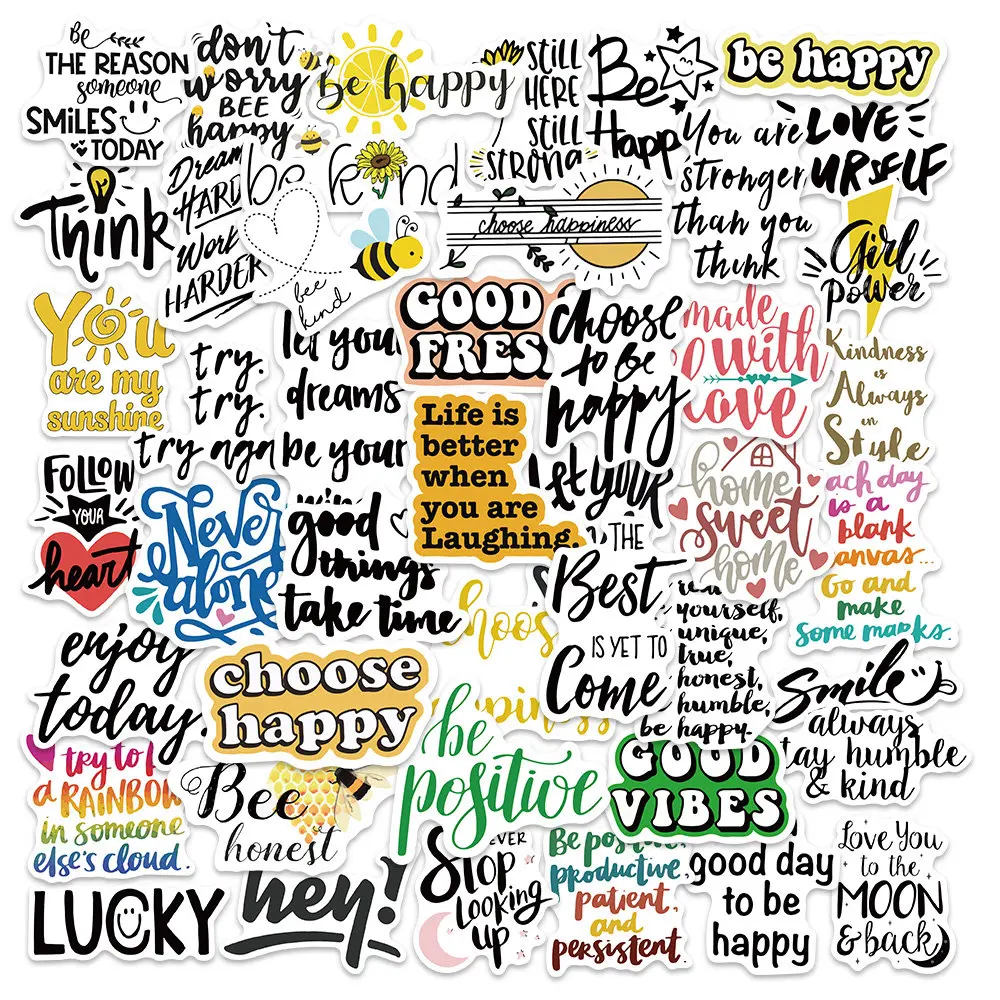 Be
THE REASON
someone
SMiLES
TODAY
don't
worry
BEE
happy
be happy
STiLL
HERE
STiLL
STRONG
Be
Happ
be happy
You are
stronger
than you
think
LOVE
URSELF
Think
Dream
HARD
Work
HARDER
be kind
bee
kind
choose happiness
Girl
Power
You
are my
sunshine
try.
try.
try again
let your
dreams
be your
GOOD
FRES
choose
to be
happy
made
with
love
Kindness
is
Always
in
Style
FOLLOW
YOUR
heart
Never
alone
good
things
take time
Life is
better
when
you are
Laughing.
let your
home
sweet
home
ach day
is a
blank
anvas...
Go and
make
some marks.
THE
Best
IS YET TO
Come
yourself,
unique,
true,
honest,
humble,
be happy.
enjoy
today.
choose
happy
hoos
ppines
be
positive
Smile
always
tay humble
& kind
try to
a RAINBOW
in someone
else's cloud.
Bee
honest
GOOD
VIBES
LUCKY
hey!
EVER
STOP
LOOKING
UP
Be posi
productive,
patient,
and
persistent.
good day
to be
happy
Love You
to the
MOON
& back